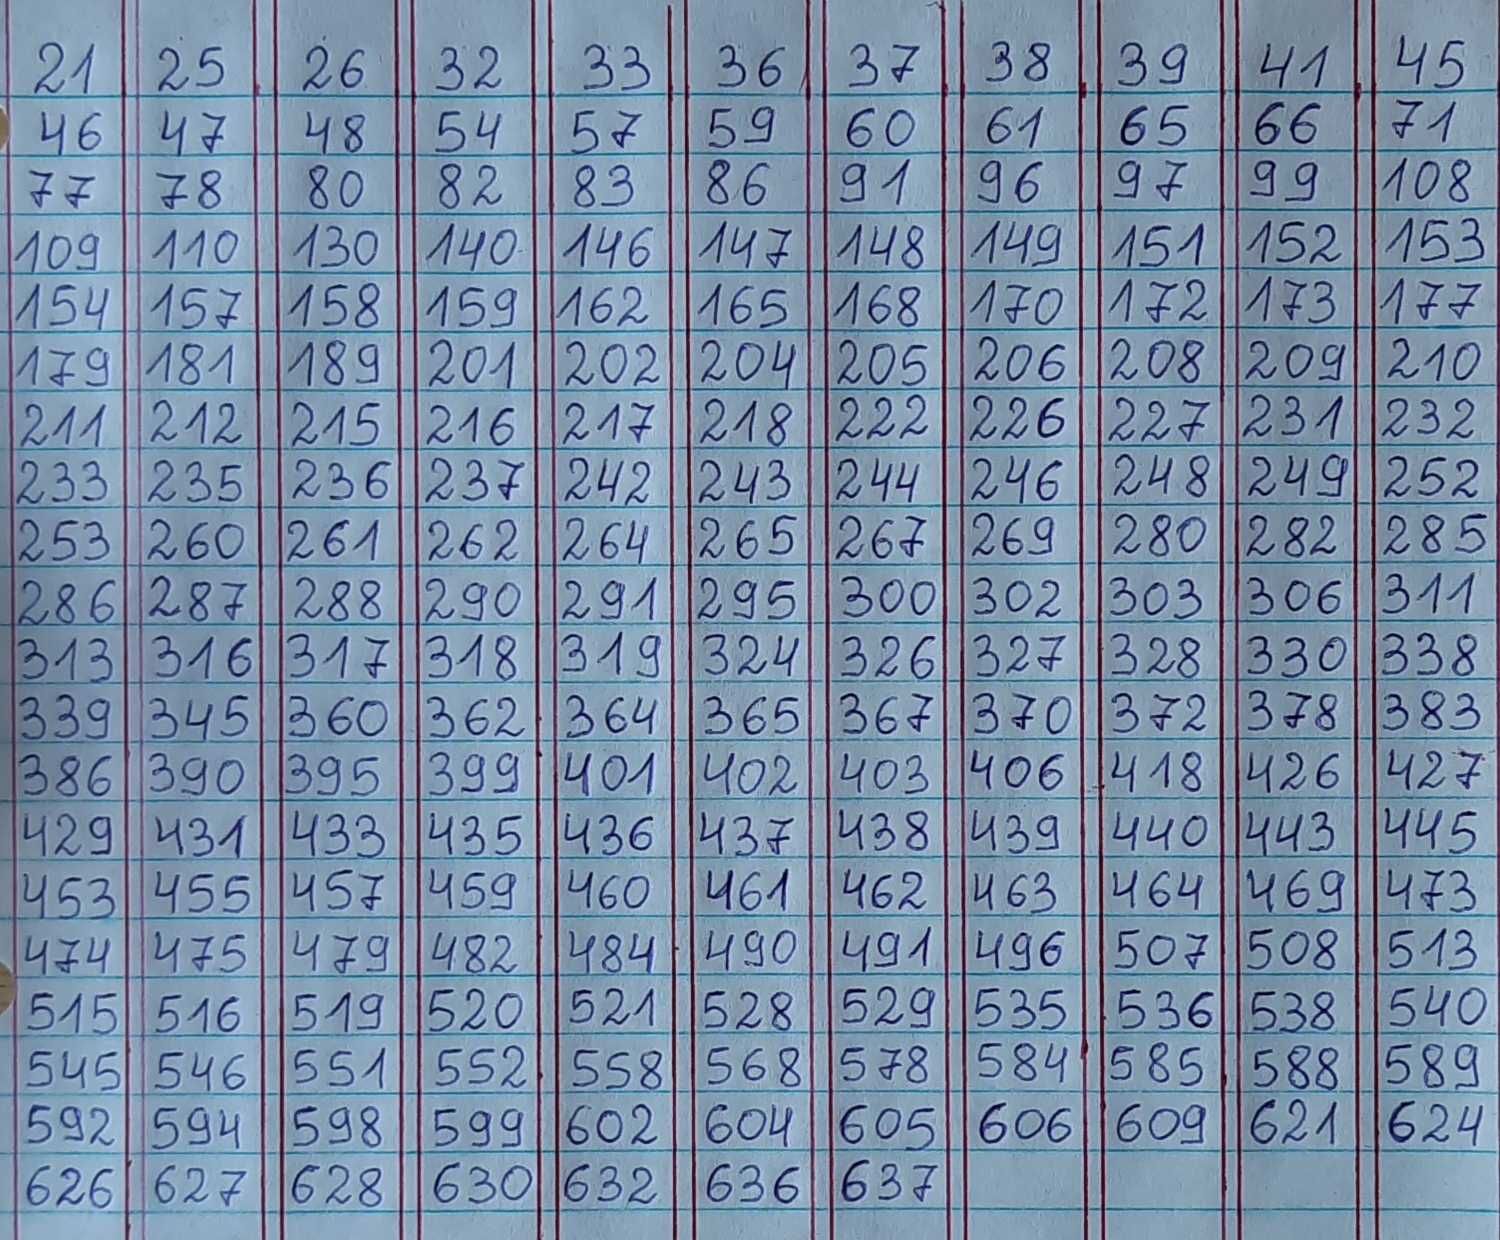 21 25 26 32 33 36 37 38 39 41 45
46 47 48 54 57 59 60 61 65 66 71
77 78 80 82 83 86 91 96 97 99 108
109 110 130 140 146 147 148 149 151 152 153
154 157 158 159 162 165 168 170 172 173 177
179 181 189 201 202 204 205 206 208 209 210
211 212 215 216 217 218 222 226 227 231 232
233 235 236 237 242 243 244 246 248 249 252
253 260 261 262 264 265 267 269 280 282 285
286 287 288 290 291 295 300 302 303 306 311
313 316 317 318 319 324 326 327 328 330 338
339 345 360 362 364 365 367 370 372 378 383
386 390 395 399 401 402 403 406 418 426 427
429 431 433 435 436 437 438 439 440 443 445
453 455 457 459 460 461 462 463 464 469 473
474 475 479 482 484 490 491 496 507 508 513
515 516 519 520 521 528 529 535 536 538 540
545 546 551 552 558 568 578 584 585 588 589
592 594 598 599 602 604 605 606 609 621 624
626 627 628 630 632 636 637